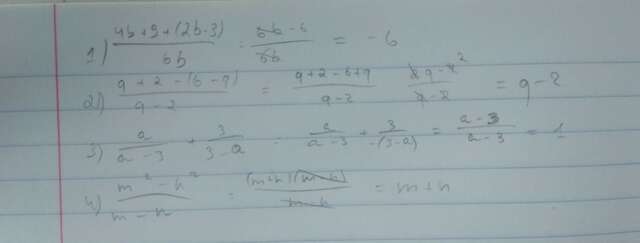 1) (4b+9+(2b-3))/6b = (6b-6)/6b = -6
2) (9+2-(6-9))/(9-2) = (9+2-6+9)/(9-2) = 9-2
3) a/(a-3) + 3/(3-a) = a/(a-3) + 3/-(3-a) = (a-3)/(a-3) = 1
4) (m²-n²)/(m-n) = (m+n)(m-n)/(m-n) = m+n